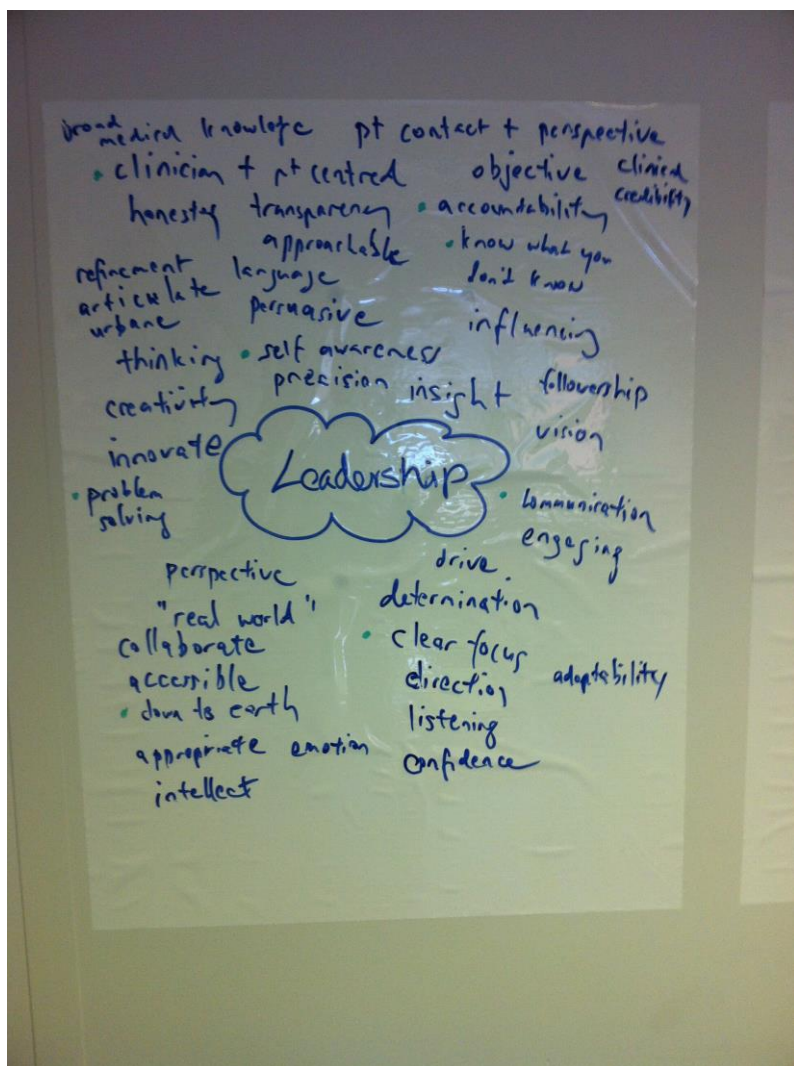 broad medical knowledge pt contact + perspective
clinician + pt centred objective clinical credibility
honesty transparency accountability
approachable know what you don't know
refinement language
articulate
urbane persuasive influencing
thinking self awareness
precision insight followership
creativity vision
innovate
Leadership
problem solving communication
engaging
perspective drive
"real world" determination
collaborate clear focus
accessible direction adaptability
down to earth listening
appropriate emotion confidence
intellect